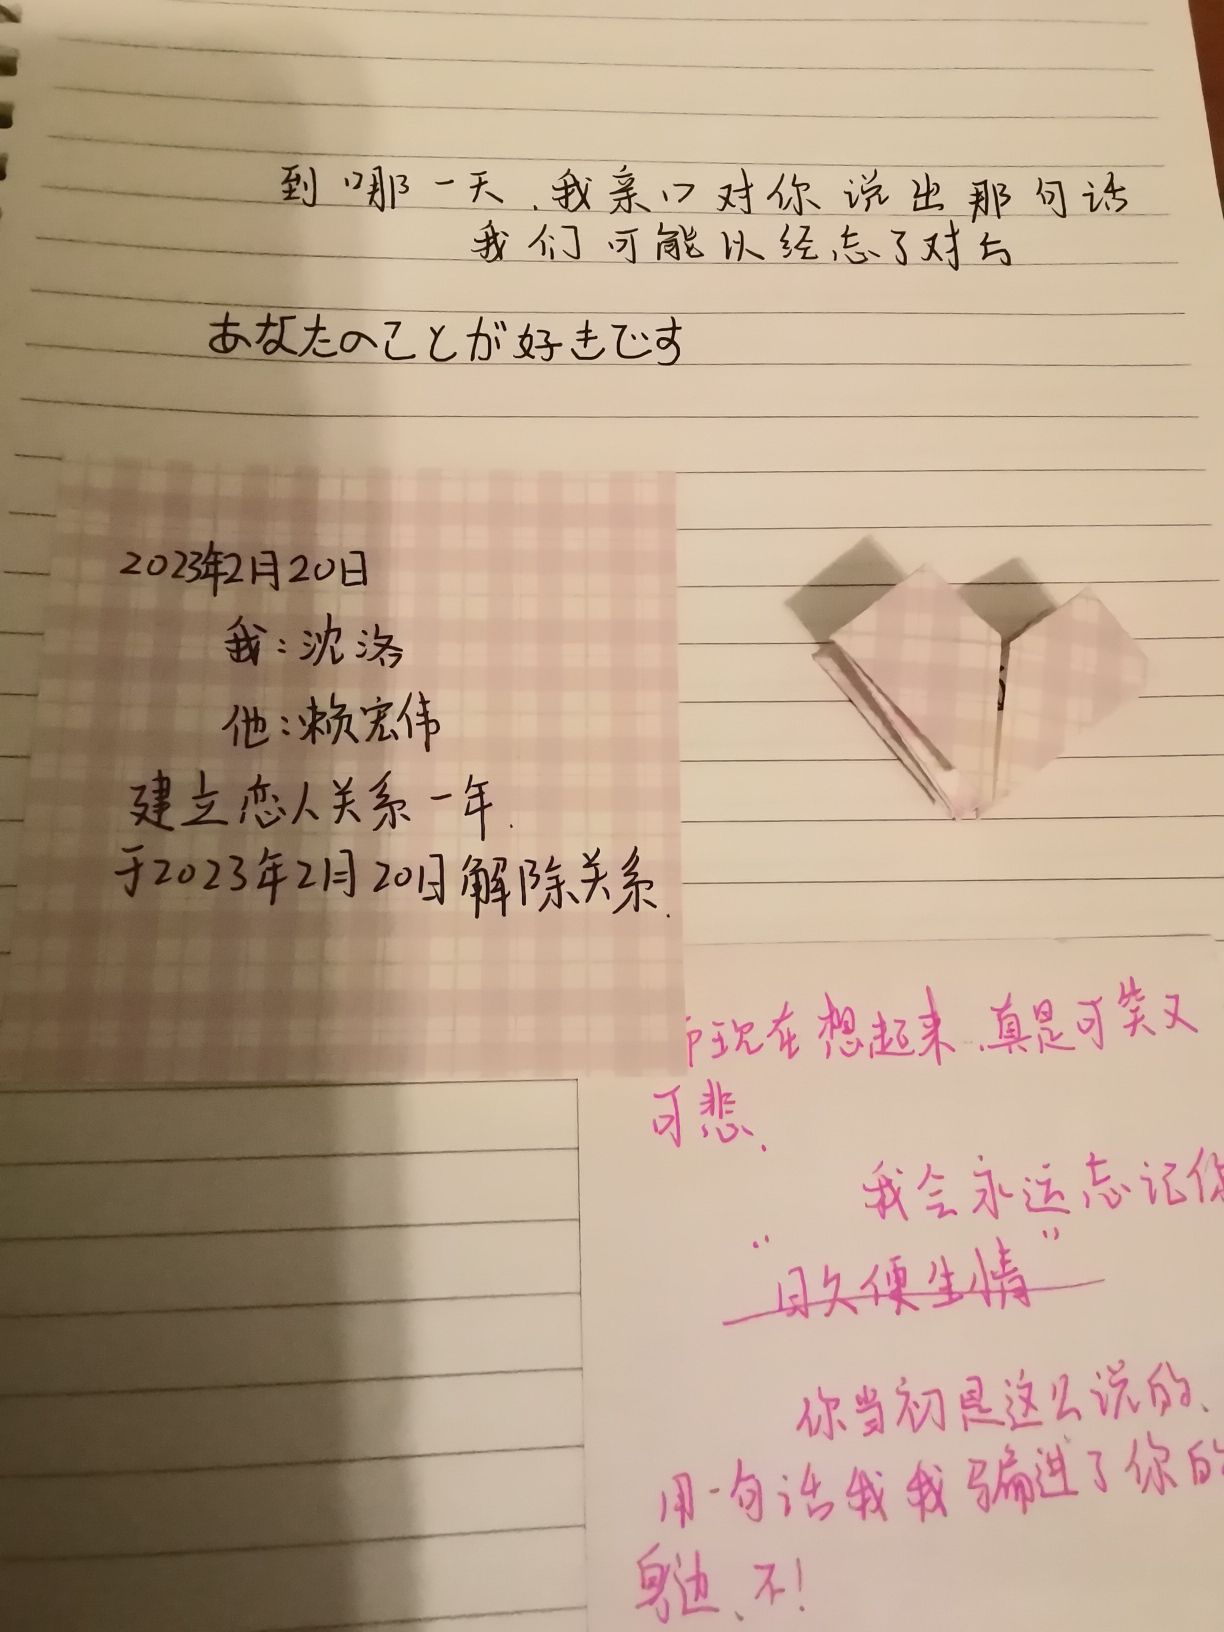 到哪一天、我亲口对你说出那句话
我们可能以经忘了对与
あなたのことが好きです
2023年2月20日
我:沈洛
他:赖宏伟
建立恋人关系一年.
于2023年2月20日解除关系.
现在想起来、真是可笑又
可悲.
我会永远忘记你
“日久便生情”
你当初是这么说的、
用一句话我我骗进了你的
身边、不!